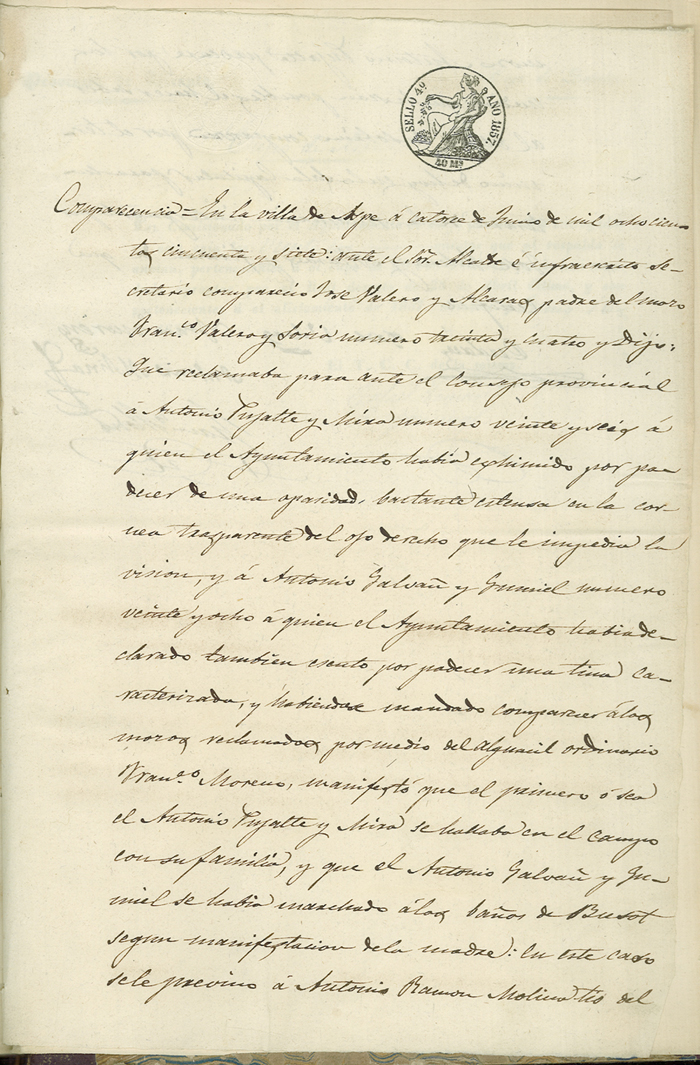 SELLO 4º AÑO 1857.
40 Ms
Comparecencia = En la villa de Aspe á catorce de Junio de mil ocho cien-
tos cincuenta y siete: ante el Sor. Alcalde é infraescrito Se-
cretario comparecio Jose Valero y Alcaraz padre del mozo
Fran.co Valero y Soria numero treinta y cuatro y Dijo:
Que reclamaba para ante el Consejo provincial
á Antonio Pujalte y Mira numero veinte y seis á
quien el Ayuntamiento habia eximido por pa-
decer de una oparidad, bastante estensa en la cor-
nea trasparente del ojo derecho que le impedia la
vision, y á Antonio Galvañ y Gumiel numero
veinte y ocho á quien el Ayuntamiento habia de-
clarado tambien esento por padecer una tiña ca-
racterizada, y habiendose mandado comparecer á los
mozos reclamados por medio del Alguacil ordinario
Fran.co Moreno, manifestó que el primero ó sea
el Antonio Pujalte y Mira se hallaba en el campo
con su familia, y que el Antonio Galvañ y Gu-
miel se habia marchado á los baños de Busot
segun manifestacion de la madre: En este caso
se le previno á Antonio Ramon Molina tio del